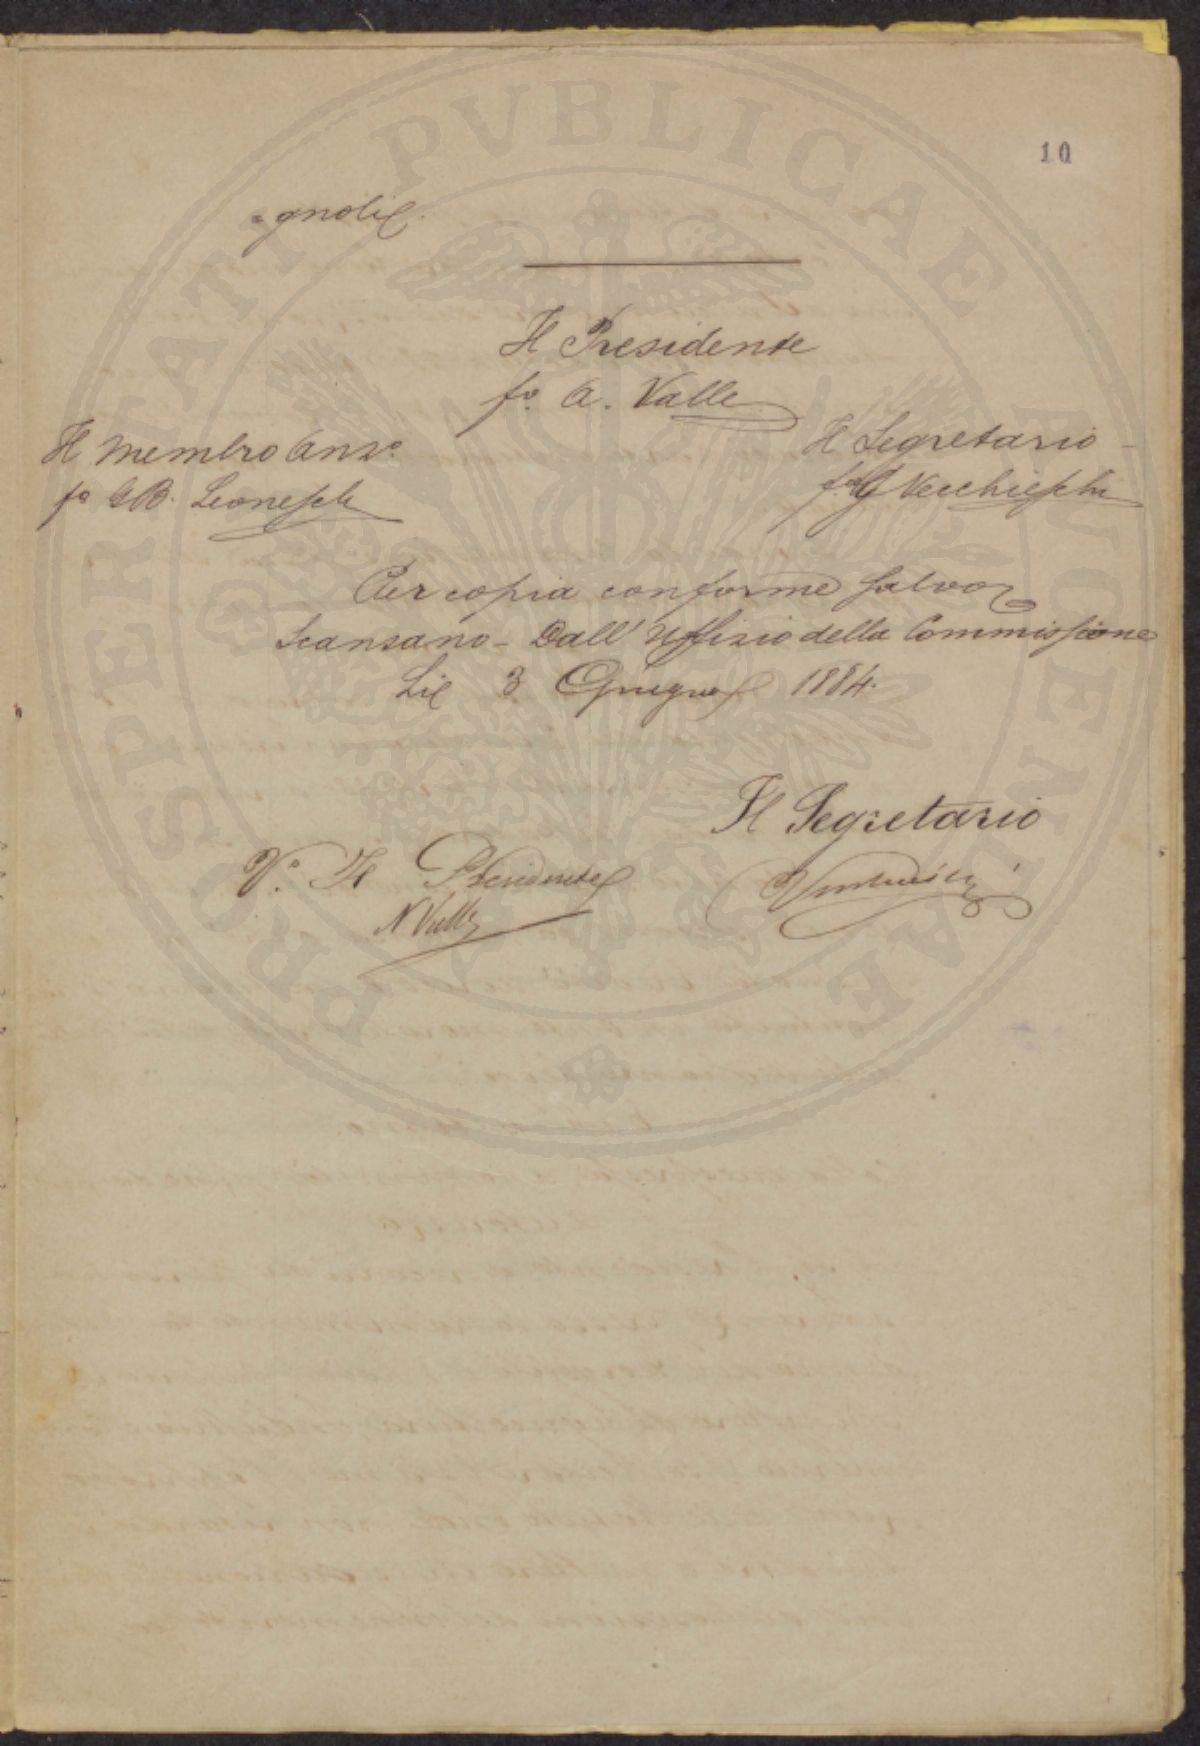 10
PROSPERITATI PVBLICAE AVGENDAE
= gnoli.
Il Presidente
fo. A. Valle
Il Membro Anzo.
fo GB. Leoneschi
Il Segretario
fo. G Vecchieschi
Per copia conforme salvo
Scansano - Dall' Uffizio della Commissione
Lì 3 Giugno 1884.
Il Segretario
Vo. Il Presidente
A Valle